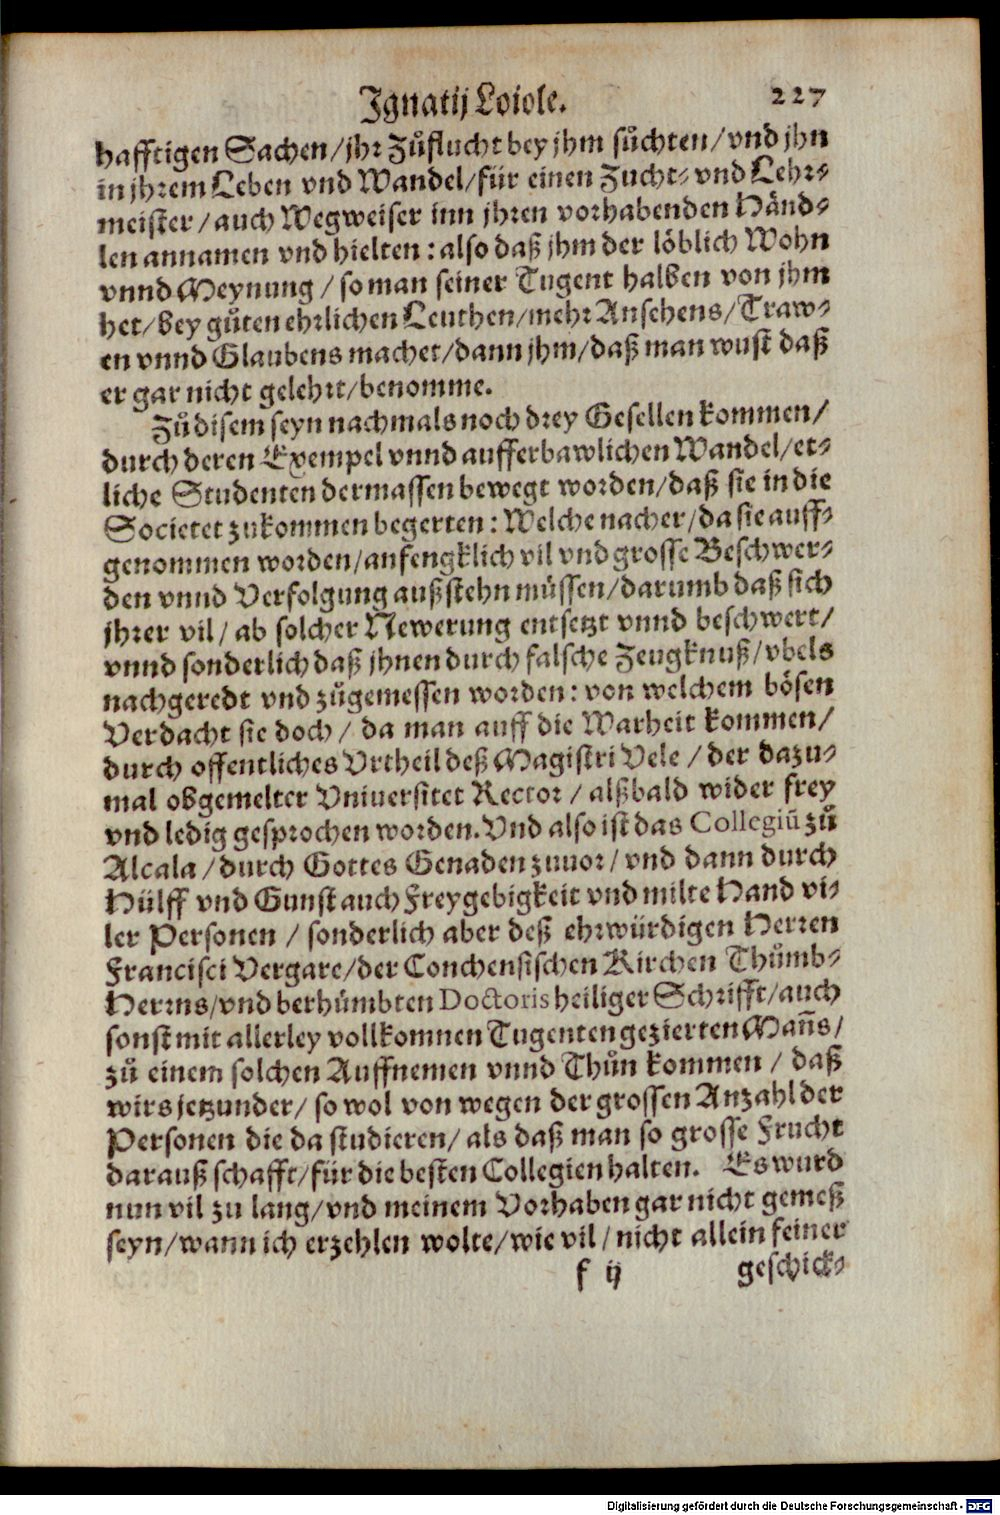 Ignatij Loiole. 227
hafftigen Sachen/jhr Zůflucht bey jhm sůchten/vnd jhn
in jhrem Leben vnd Wandel/für einen Zucht- vnd Lehr-
meister/auch Wegweiser inn jhren vorhabenden Händ-
len annamen vnd hielten: also daß jhm der löblich Wohn
vnnd Meynung/so man seiner Tugent halben von jhm
het/bey gůten ehrlichen Leuthen/mehr Ansehens/Traw-
en vnnd Glaubens machet/dann jhm/daß man wust daß
er gar nicht gelehrt/benomme.
Zů disem seyn nachmals noch drey Gesellen kommen/
durch deren Exempel vnnd aufferbawlichen Wandel/et-
liche Studenten dermassen bewegt worden/daß sie in die
Societet zukommen begerten: Welche nacher/da sie auff-
genommen worden/anfengklich vil vnd grosse Beschwer-
den vnnd Verfolgung außstehn müssen/darumb daß sich
jhrer vil/ab solcher Newerung entsetzt vnnd beschwert/
vnnd sonderlich daß jhnen durch falsche Zeugknuß/vbels
nachgeredt vnd zůgemessen worden: von welchem bösen
Verdacht sie doch/da man auff die Warheit kommen/
durch offentliches Vrtheil deß Magistri Vele/der dazu-
mal obgemelter Vniuersitet Rector/alßbald wider frey
vnd ledig gesprochen worden. Vnd also ist das Collegiū zů
Alcala/durch Gottes Genaden zuuor/vnd dann durch
Hülff vnd Gunst auch Freygebigkeit vnd milte Hand vi-
ler Personen/sonderlich aber deß ehrwürdigen Herren
Francisci Vergare/der Conchensischen Kirchen Thůmb-
Herrns/vnd berhůmbten Doctoris heiliger Schrifft/auch
sonst mit allerley vollkomnen Tugenten gezierten Mañs/
zů einem solchen Auffnemen vnnd Thůn kommen/daß
wirs jetzunder/so wol von wegen der grossen Anzahl der
Personen die da studieren/als daß man so grosse Frucht
darauß schafft/für die besten Collegien halten. Es wurd
nun vil zu lang/vnd meinem Vorhaben gar nicht gemeß
seyn/wann ich erzehlen wolte/wie vil/nicht allein feiner
f ij geschick-
Digitalisierung gefördert durch die Deutsche Forschungsgemeinschaft - DFG